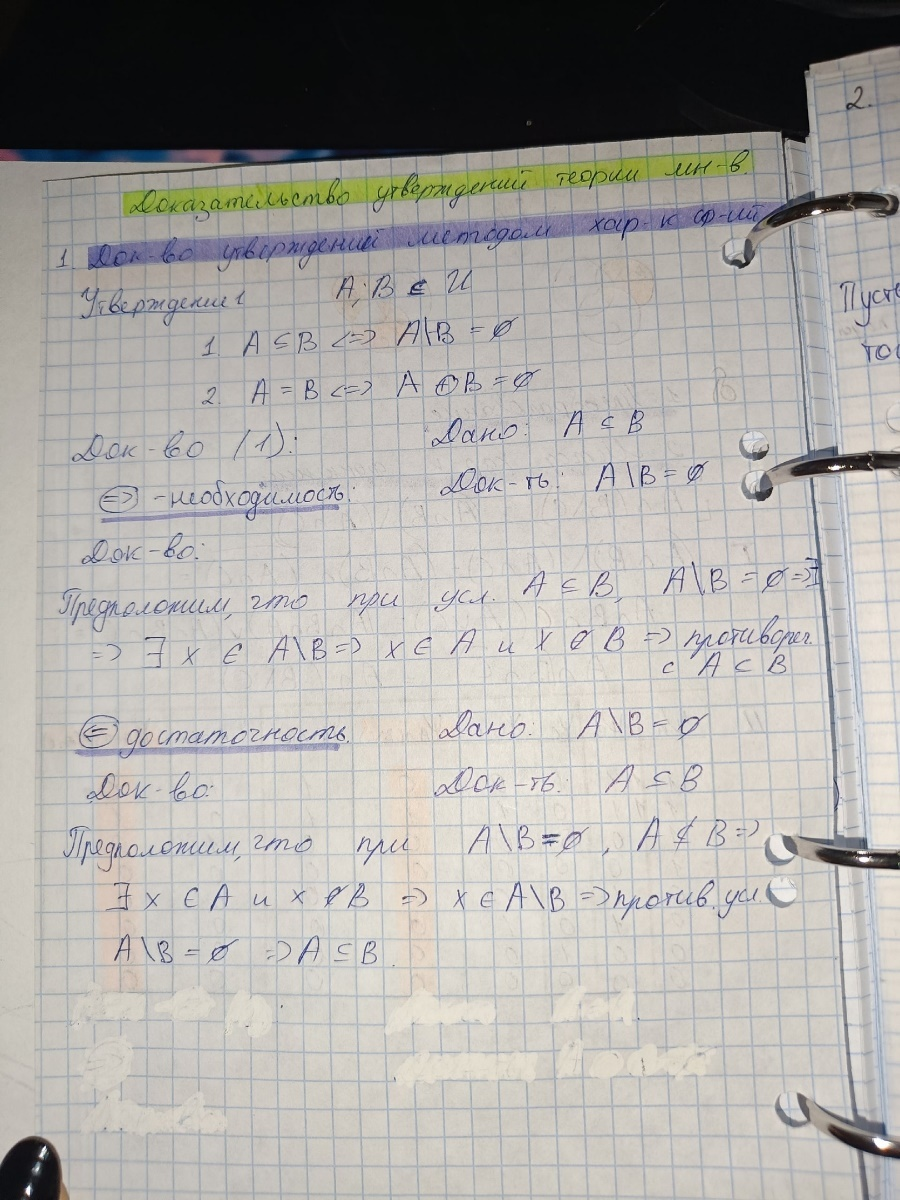 Доказательство утверждений теории мн-в.
1. Док-во утверждений методом хар-к ф-ий
Утверждение 1 A, B ∈ U
1. A ⊆ B <=> A\B = ∅
2. A = B <=> A ⊕ B = ∅
Док-во (1): Дано: A ⊆ B
(=>) - необходимость: Док-ть: A\B = ∅
Док-во:
Предположим, что при усл. A ⊆ B, A\B = ∅ =>
=> ∃ x ∈ A\B => x ∈ A и x ∉ B => противореч.
с A ⊂ B
(<=) достаточность. Дано: A\B = ∅
Док-во: Док-ть: A ⊆ B
Предположим, что при A\B = ∅, A ⊈ B =>
∃ x ∈ A и x ∉ B => x ∈ A\B => против. усл.
A\B = ∅ => A ⊆ B.
2.
Пусть